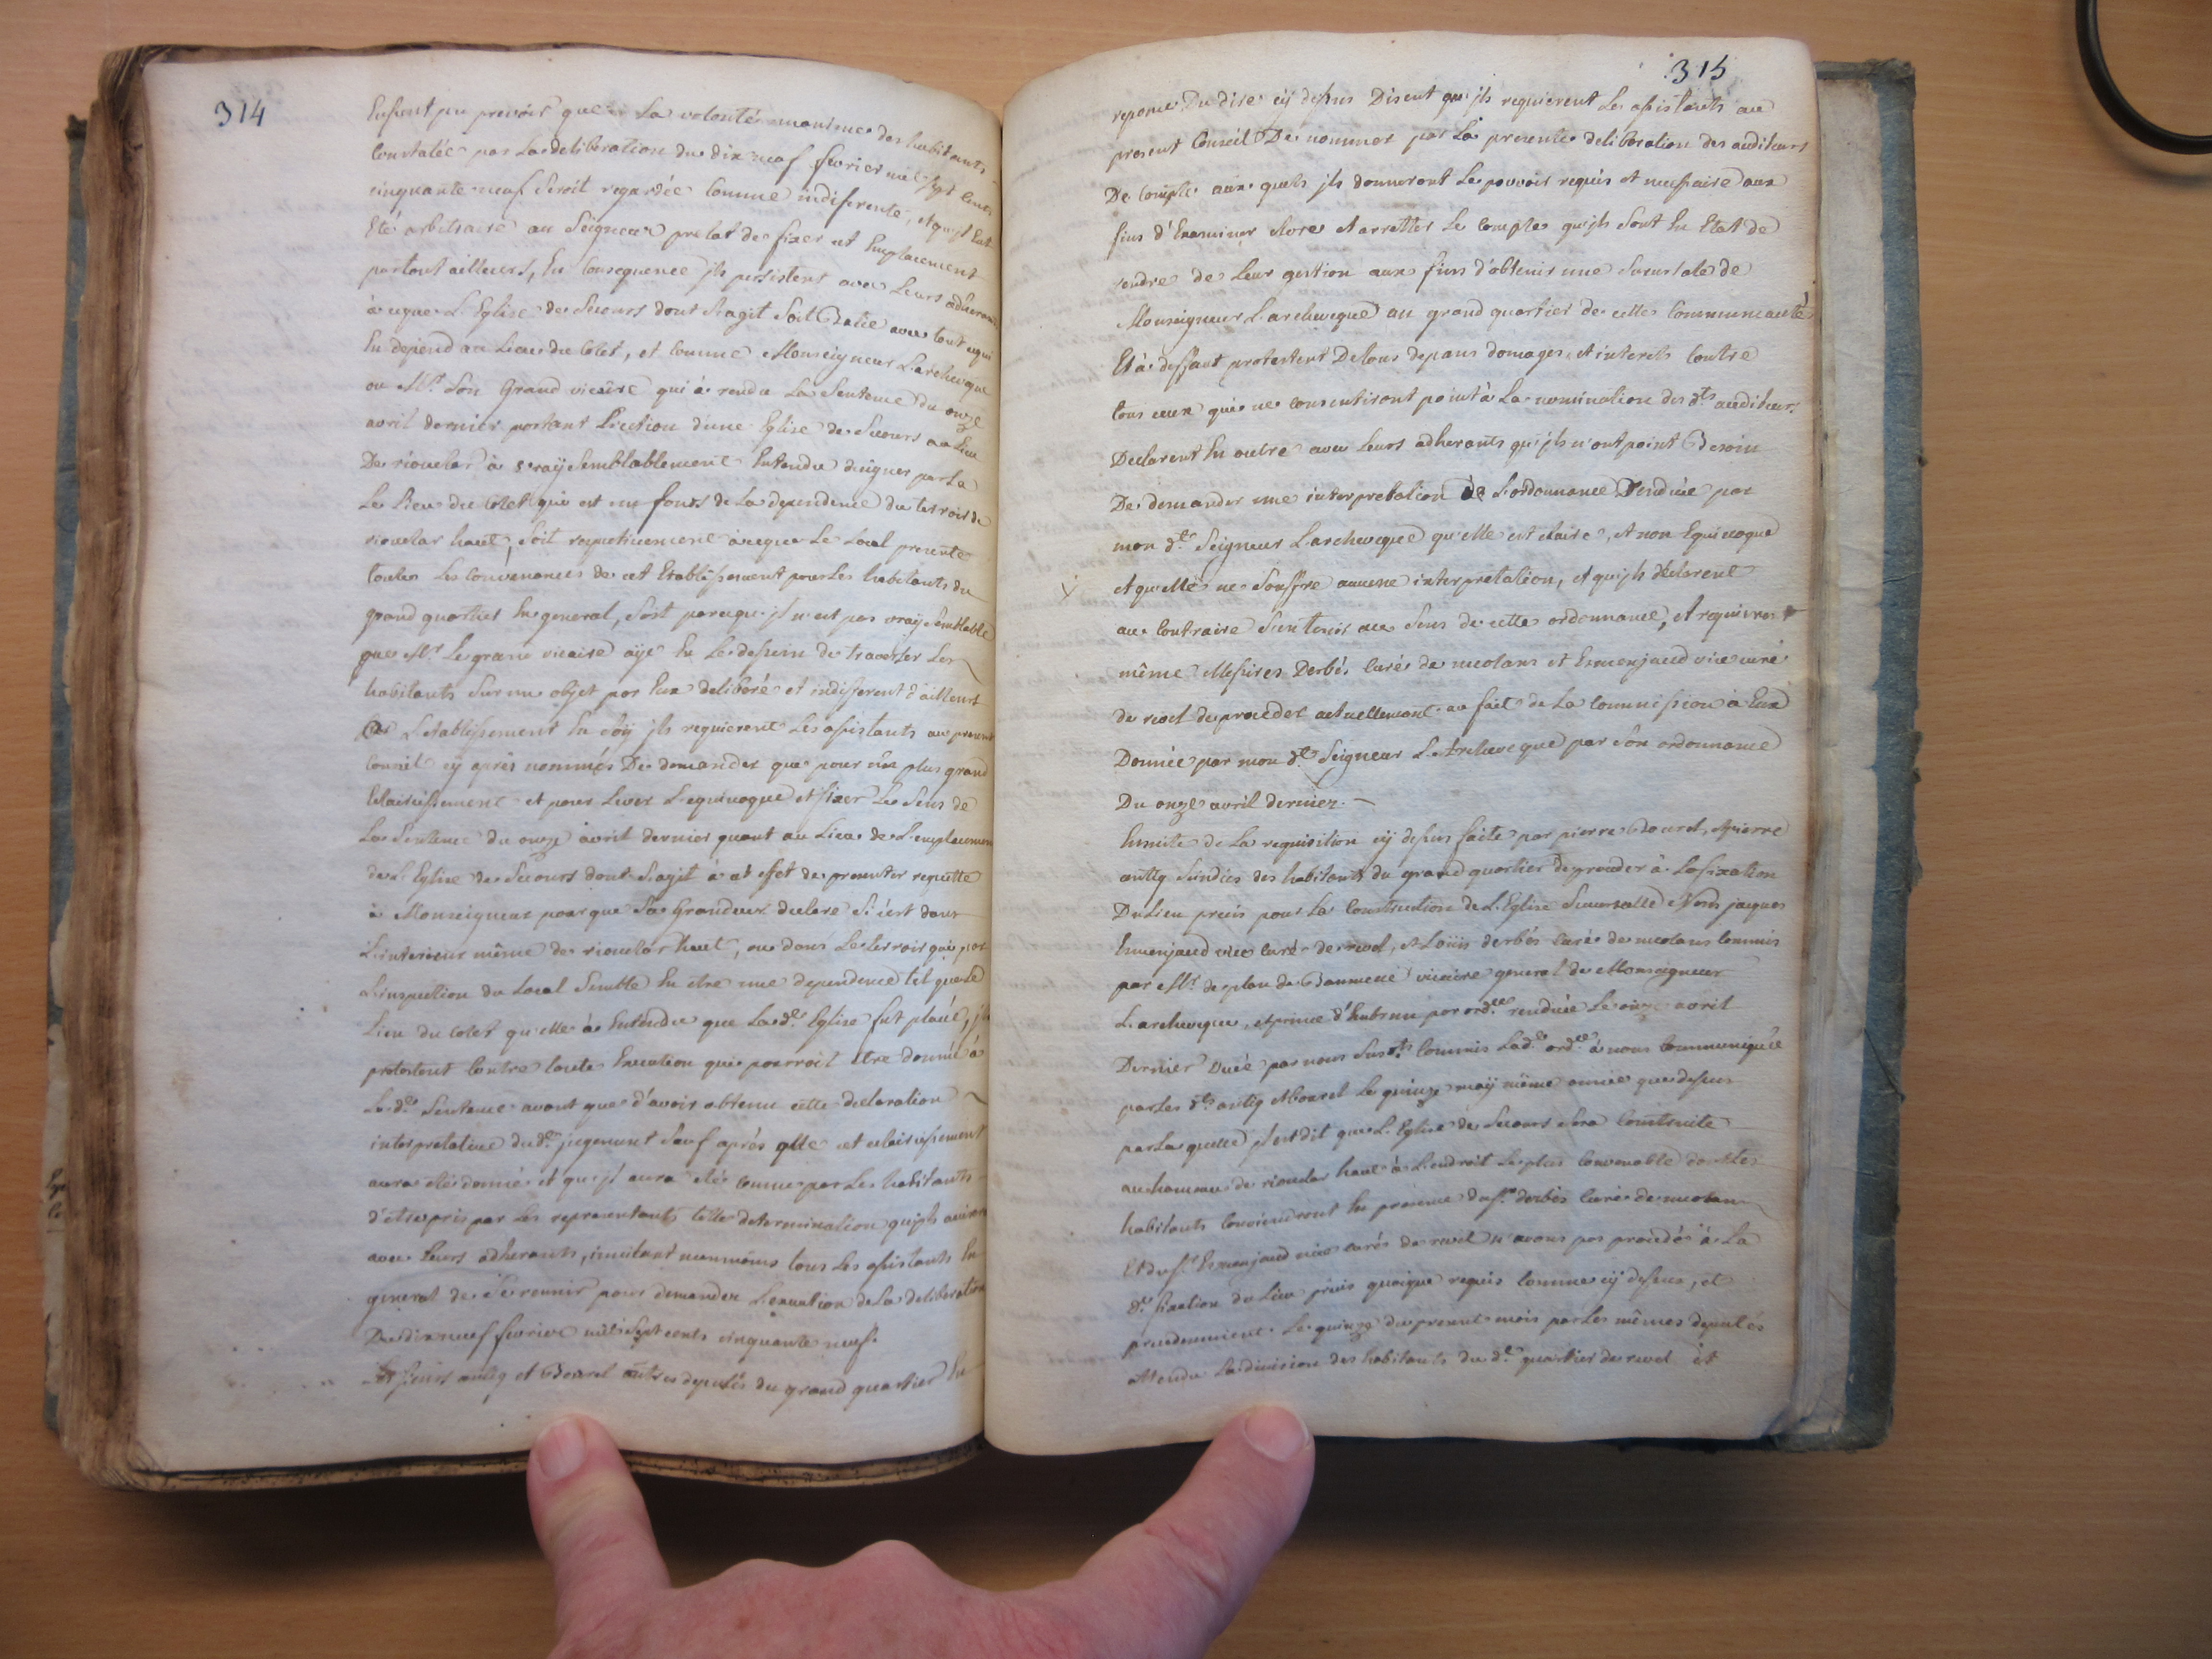 314
Eussent peu prevoir que la volonté unanime des habitants
Constatée par La deliberation du dix neuf fevrier mil sept cents
cinquante neuf Seroit regardée Comme indiferente, et qu'jl Eut
Eté arbitraire au Seigneur prelat de fixer cet Emplacement
partout ailleurs, En Consequence jls persistent avec Leurs adherants
à ceque L'Eglise de Secours dont S'agit Soit Batie avec tout cequi
En depend au Lieu du Colet, et Comme Monseigneur L'archeveque
ou Mr. Son Grand vicaire qui à rendu La Sentence du onze
avril dernier portant L'erection d'une Eglise de Secours au Lieu
De rioclar à vraÿ Semblablement Entendu designer par La
Le Lieu du Colet qui est un fonds de La dependence du terroir de
rioclar haut, Soit respectivement àceque Le Local presente
toutes Les Convenances de cet Etablissement pour Les habitants du
grand quartier En general, Soit parcequ'jl n'est pas vraÿ Semblable
que Mr. Le grand vicaire aÿe Eu Le dessein de traverser Les
habitants Sur un objet par Eux deliberé et indifferent d'ailleurs
à L'Etablissement En Soÿ jls requierent Les assistants au present
Conseil cÿ après nommés De demander que pour un plus grand
Eclaircissement et pour Lever L'equivoque et fixer Le Sens de
La Sentence du onze avril dernier quant au Lieu de L'emplacement
de L'Eglise de Secours dont S'agit à cet effet de presenter requette
à Monseigneur pour que Sa Grandeur declare Si c'est dans
L'interieur même de rioclar haut, ou dans Le terroir qui par
L'inspection du Local Semble En etre une dependence tel que Le
Lieu du Colet qu'elle à Entendu que La de. Eglise fut placée, jls
protestent Contre toute Execution qui pourroit etre donnée à
La de. Sentence avant que d'avoir obtenu cette declaration
interpretative du dt. jugement Sauf après que cet eclaircissement
aura eté donné et qu'jl aura eté connu par Les habitants
d'etre pris par Les representants telle determination qu'jls aviseront
avec Leurs adherants, invitant neanmoins tous Les assistants En
general de Se reunir pour demander L'execution de La deliberation
Du dix neuf fevrier mil Sept cents cinquante neuf.
Les Sieurs antiq et Bourel autres deputés du grand quartier En
315
reponce Du dire cÿ dessus Disent qu'jls requierent Les assistants au
present Conseil De nommer par La presente deliberation des auditeurs
De Compte aux quels jls donneront Le pouvoir requis et necessaire aux
fins d'Examiner clore et arretter Le Compte qu'jls Sont En Etat de
rendre de Leur gestion aux fins d'obtenir une Sucursale de
Monseigneur L'archeveque au grand quartier de cette Communeauté
Et à deffaut protestent De tous depans domages et interets Contre
tous ceux qui ne consentiront point à La nomination des dts. auditeurs
Declarent En outre avec Leurs adherants qu'jls n'ont point Besoin
De demander une interpretation de L'ordonnance Rendue par
mon dt. Seigneur L'archeveque qu'elle est claire, et non Equivoque
et qu'elle ne Souffre aucune interpretation, et qu'jls déclarent
au Contraire S'en tenir au Sens de cette ordonnance, et requierent
même Messires Derbés Curé de meolans et Esmenjaud vice curé
de revel de proceder actuellement au fait de La Commission à Eux
Donnée par mon dt. Seigneur L'Archeveque par Son ordonnance
Du onze avril dernier.
Ensuite de La requisition cÿ dessus faite par pierre Bourel, et pierre
antiq Sindics des habitants du grand quartier de proceder à La fixation
Du Lieu precis pour La Construction de L'Eglise Sucursalle Nous jaques
Esmenjaud vice Curé de revel, et Loüis derbés Curé de meolans Commis
par Mr. de vicaire general de Monseigneur
L'archeveque, et prince d'Embrun par ordce. rendüe Le onze avril
Dernier par nous Susdts. Commis Lade. ordce. à nous Communiquée
par Les dts. antiq et Bourel Le quinze maÿ même année que dessus
par La quelle jl est dit que L'Eglise de Secours Sera Construite
au hameau de rioclar haut à L'endroit Le plus Convenable dont Les
habitants Conviendront En presence du Sr. derbés Curé de meolan
Et du Sr. Esmenjaud vice curé de revel n'avons pas procedé à La
de. fixation du Lieu précis quoique requis Comme cÿ dessus, et
precedemment Le quinze du present mois par Les mêmes deputés
attendu La division des habitants du dt. quartier de revel et